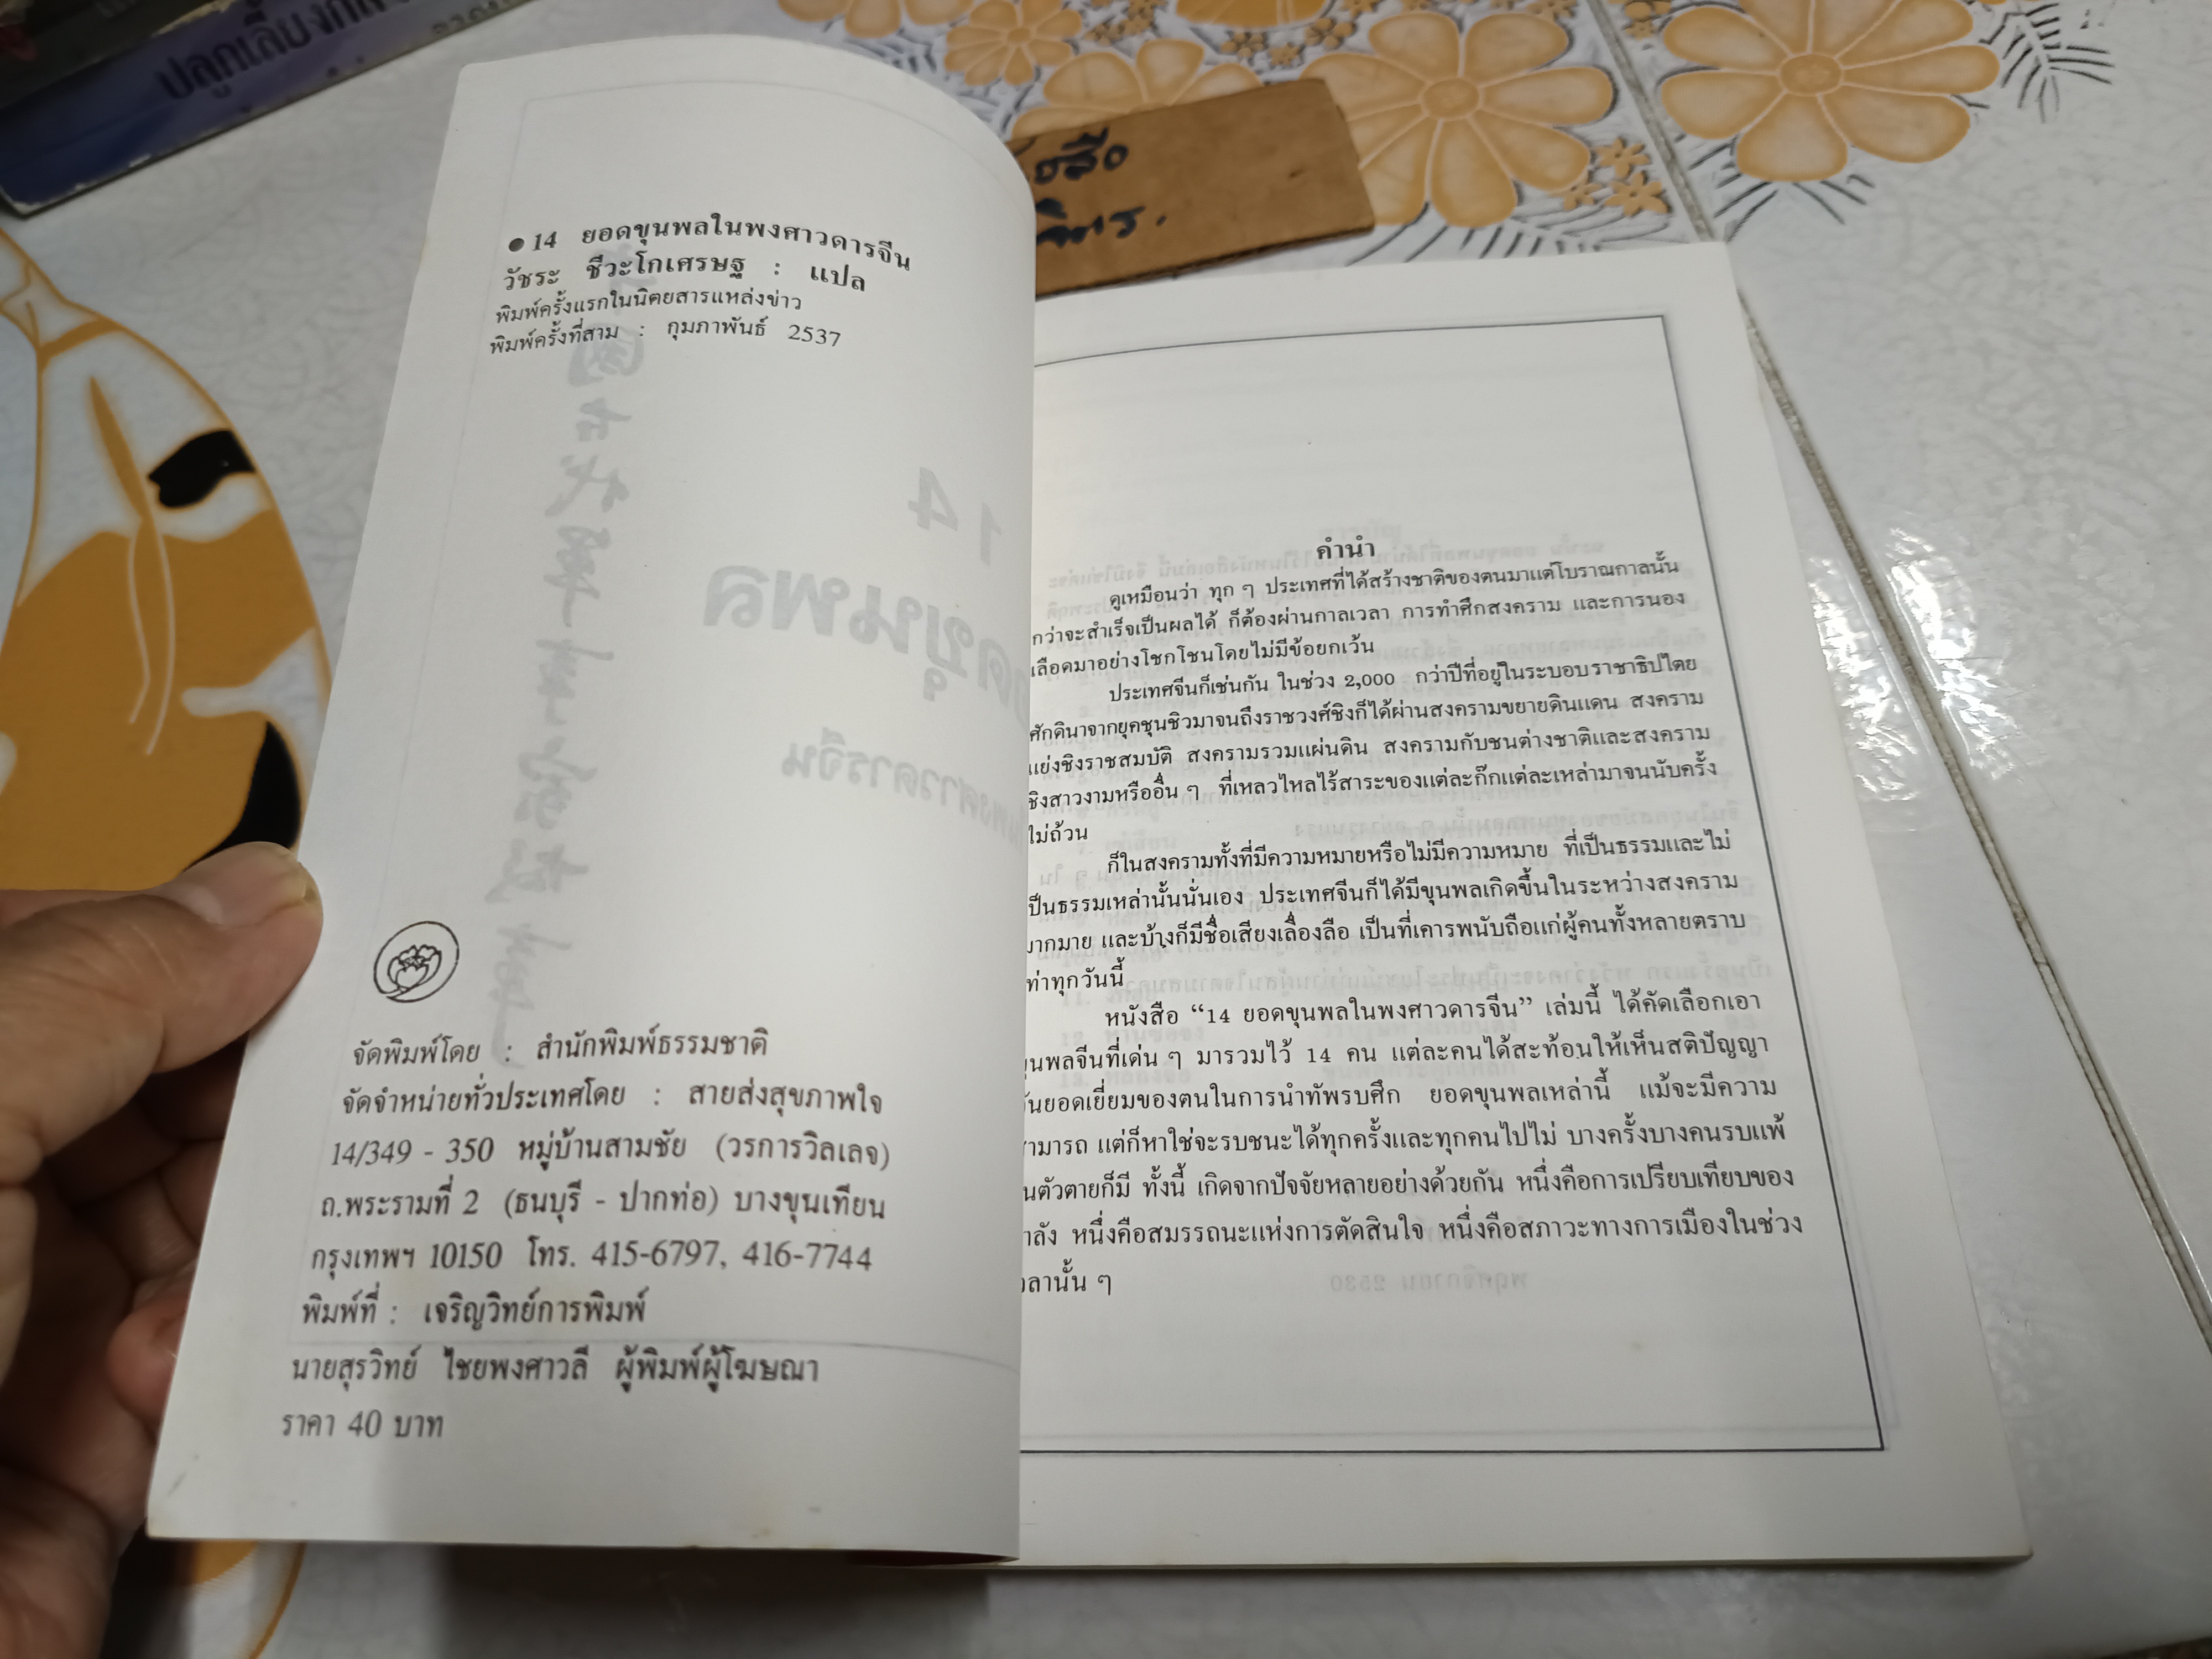 ปลูกเลี้ยง
● 14 ยอดขุนพลในพงศาวดารจีน
วัชระ ชีวะโกเศรษฐ : แปล
พิมพ์ครั้งแรกในนิตยสารแหล่งข่าว
พิมพ์ครั้งที่สาม : กุมภาพันธ์ 2537
จัดพิมพ์โดย : สำนักพิมพ์ธรรมชาติ
จัดจำหน่ายทั่วประเทศโดย : สายส่งสุขภาพใจ
14/349 - 350 หมู่บ้านสามชัย (วรการวิลเลจ)
ถ.พระรามที่ 2 (ธนบุรี - ปากท่อ) บางขุนเทียน
กรุงเทพฯ 10150 โทร. 415-6797, 416-7744
พิมพ์ที่ : เจริญวิทย์การพิมพ์
นายสุรวิทย์ ไชยพงศาวลี ผู้พิมพ์ผู้โฆษณา
ราคา 40 บาท
คำนำ
ดูเหมือนว่า ทุก ๆ ประเทศที่ได้สร้างชาติของตนมาแต่โบราณกาลนั้น
กว่าจะสำเร็จเป็นผลได้ ก็ต้องผ่านกาลเวลา การทำศึกสงคราม และการนอง
เลือดมาอย่างโชกโชนโดยไม่มีข้อยกเว้น
ประเทศจีนก็เช่นกัน ในช่วง 2,000 กว่าปีที่อยู่ในระบอบราชาธิปไตย
ศักดินาจากยุคชุนชิวมาจนถึงราชวงศ์ชิงก็ได้ผ่านสงครามขยายดินแดน สงคราม
แย่งชิงราชสมบัติ สงครามรวมแผ่นดิน สงครามกับชนต่างชาติและสงคราม
ชิงสาวงามหรืออื่น ๆ ที่เหลวไหลไร้สาระของแต่ละก๊กแต่ละเหล่ามาจนนับครั้ง
ไม่ถ้วน
ก็ในสงครามทั้งที่มีความหมายหรือไม่มีความหมาย ที่เป็นธรรมและไม่
เป็นธรรมเหล่านั้นนั่นเอง ประเทศจีนก็ได้มีขุนพลเกิดขึ้นในระหว่างสงคราม
มากมาย และบ้างก็มีชื่อเสียงเลื่องลือ เป็นที่เคารพนับถือแก่ผู้คนทั้งหลายตราบ
เท่าทุกวันนี้
หนังสือ “14 ยอดขุนพลในพงศาวดารจีน” เล่มนี้ ได้คัดเลือกเอา
ขุนพลจีนที่เด่น ๆ มารวมไว้ 14 คน แต่ละคนได้สะท้อนให้เห็นสติปัญญา
อันยอดเยี่ยมของตนในการนำทัพรบศึก ยอดขุนพลเหล่านี้ แม้จะมีความ
สามารถ แต่ก็หาใช่จะรบชนะได้ทุกครั้งและทุกคนไปไม่ บางครั้งบางคนรบแพ้
จนตัวตายก็มี ทั้งนี้ เกิดจากปัจจัยหลายอย่างด้วยกัน หนึ่งคือการเปรียบเทียบของ
กำลัง หนึ่งคือสมรรถนะแห่งการตัดสินใจ หนึ่งคือสภาวะทางการเมืองในช่วง
เวลานั้น ๆ